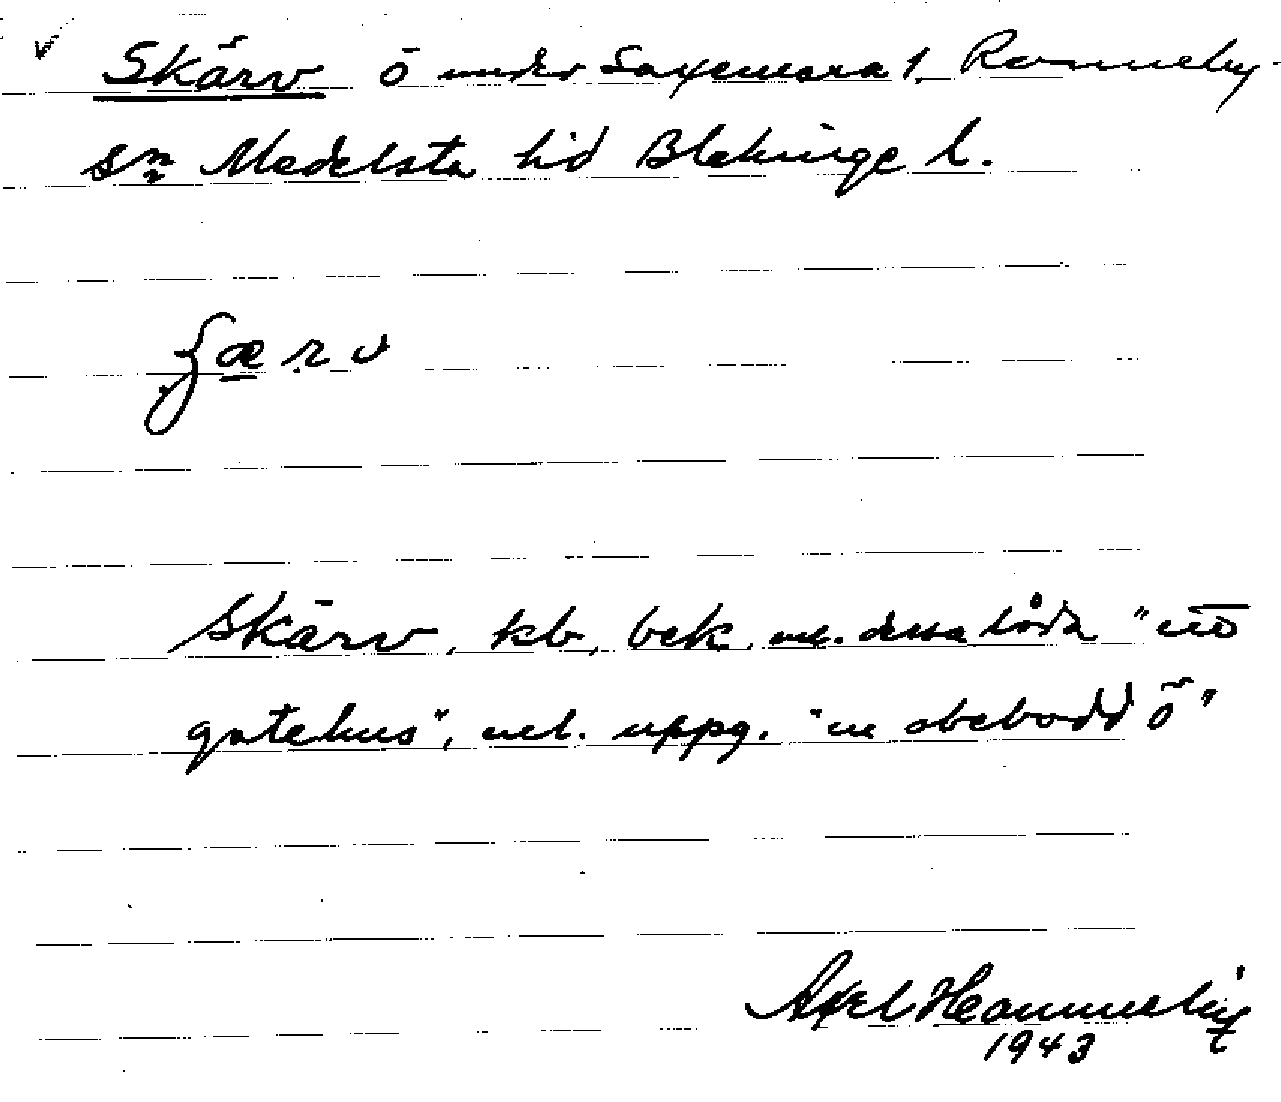 Skärv ö under Saxemara 1, Ronneby
sn Medelsta hd Blekinge l.
ʃærv
Skärv, kb, bek. m. dessa båda "ett
gatehus", enl. uppg. "en obebodd ö"
Axel
1943